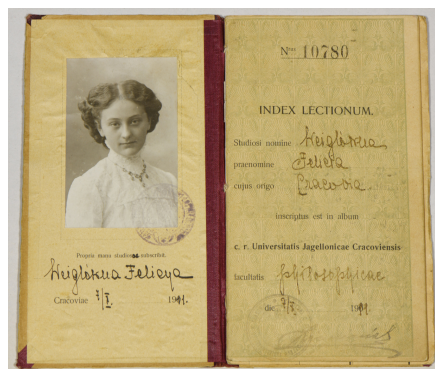 Propria manu studiosae subscribit.
Weiglówna Felicya
Cracoviae 7/I. 1911.
Nrus 10780
INDEX LECTIONUM.
Studiosi nomine Weiglówna
praenomine Felicya
cujus origo Cracovia
inscriptus est in album
c. r. Universitatis Jagellonicae Cracoviensis
facultatis philosophicae
die 7/I. 1911.